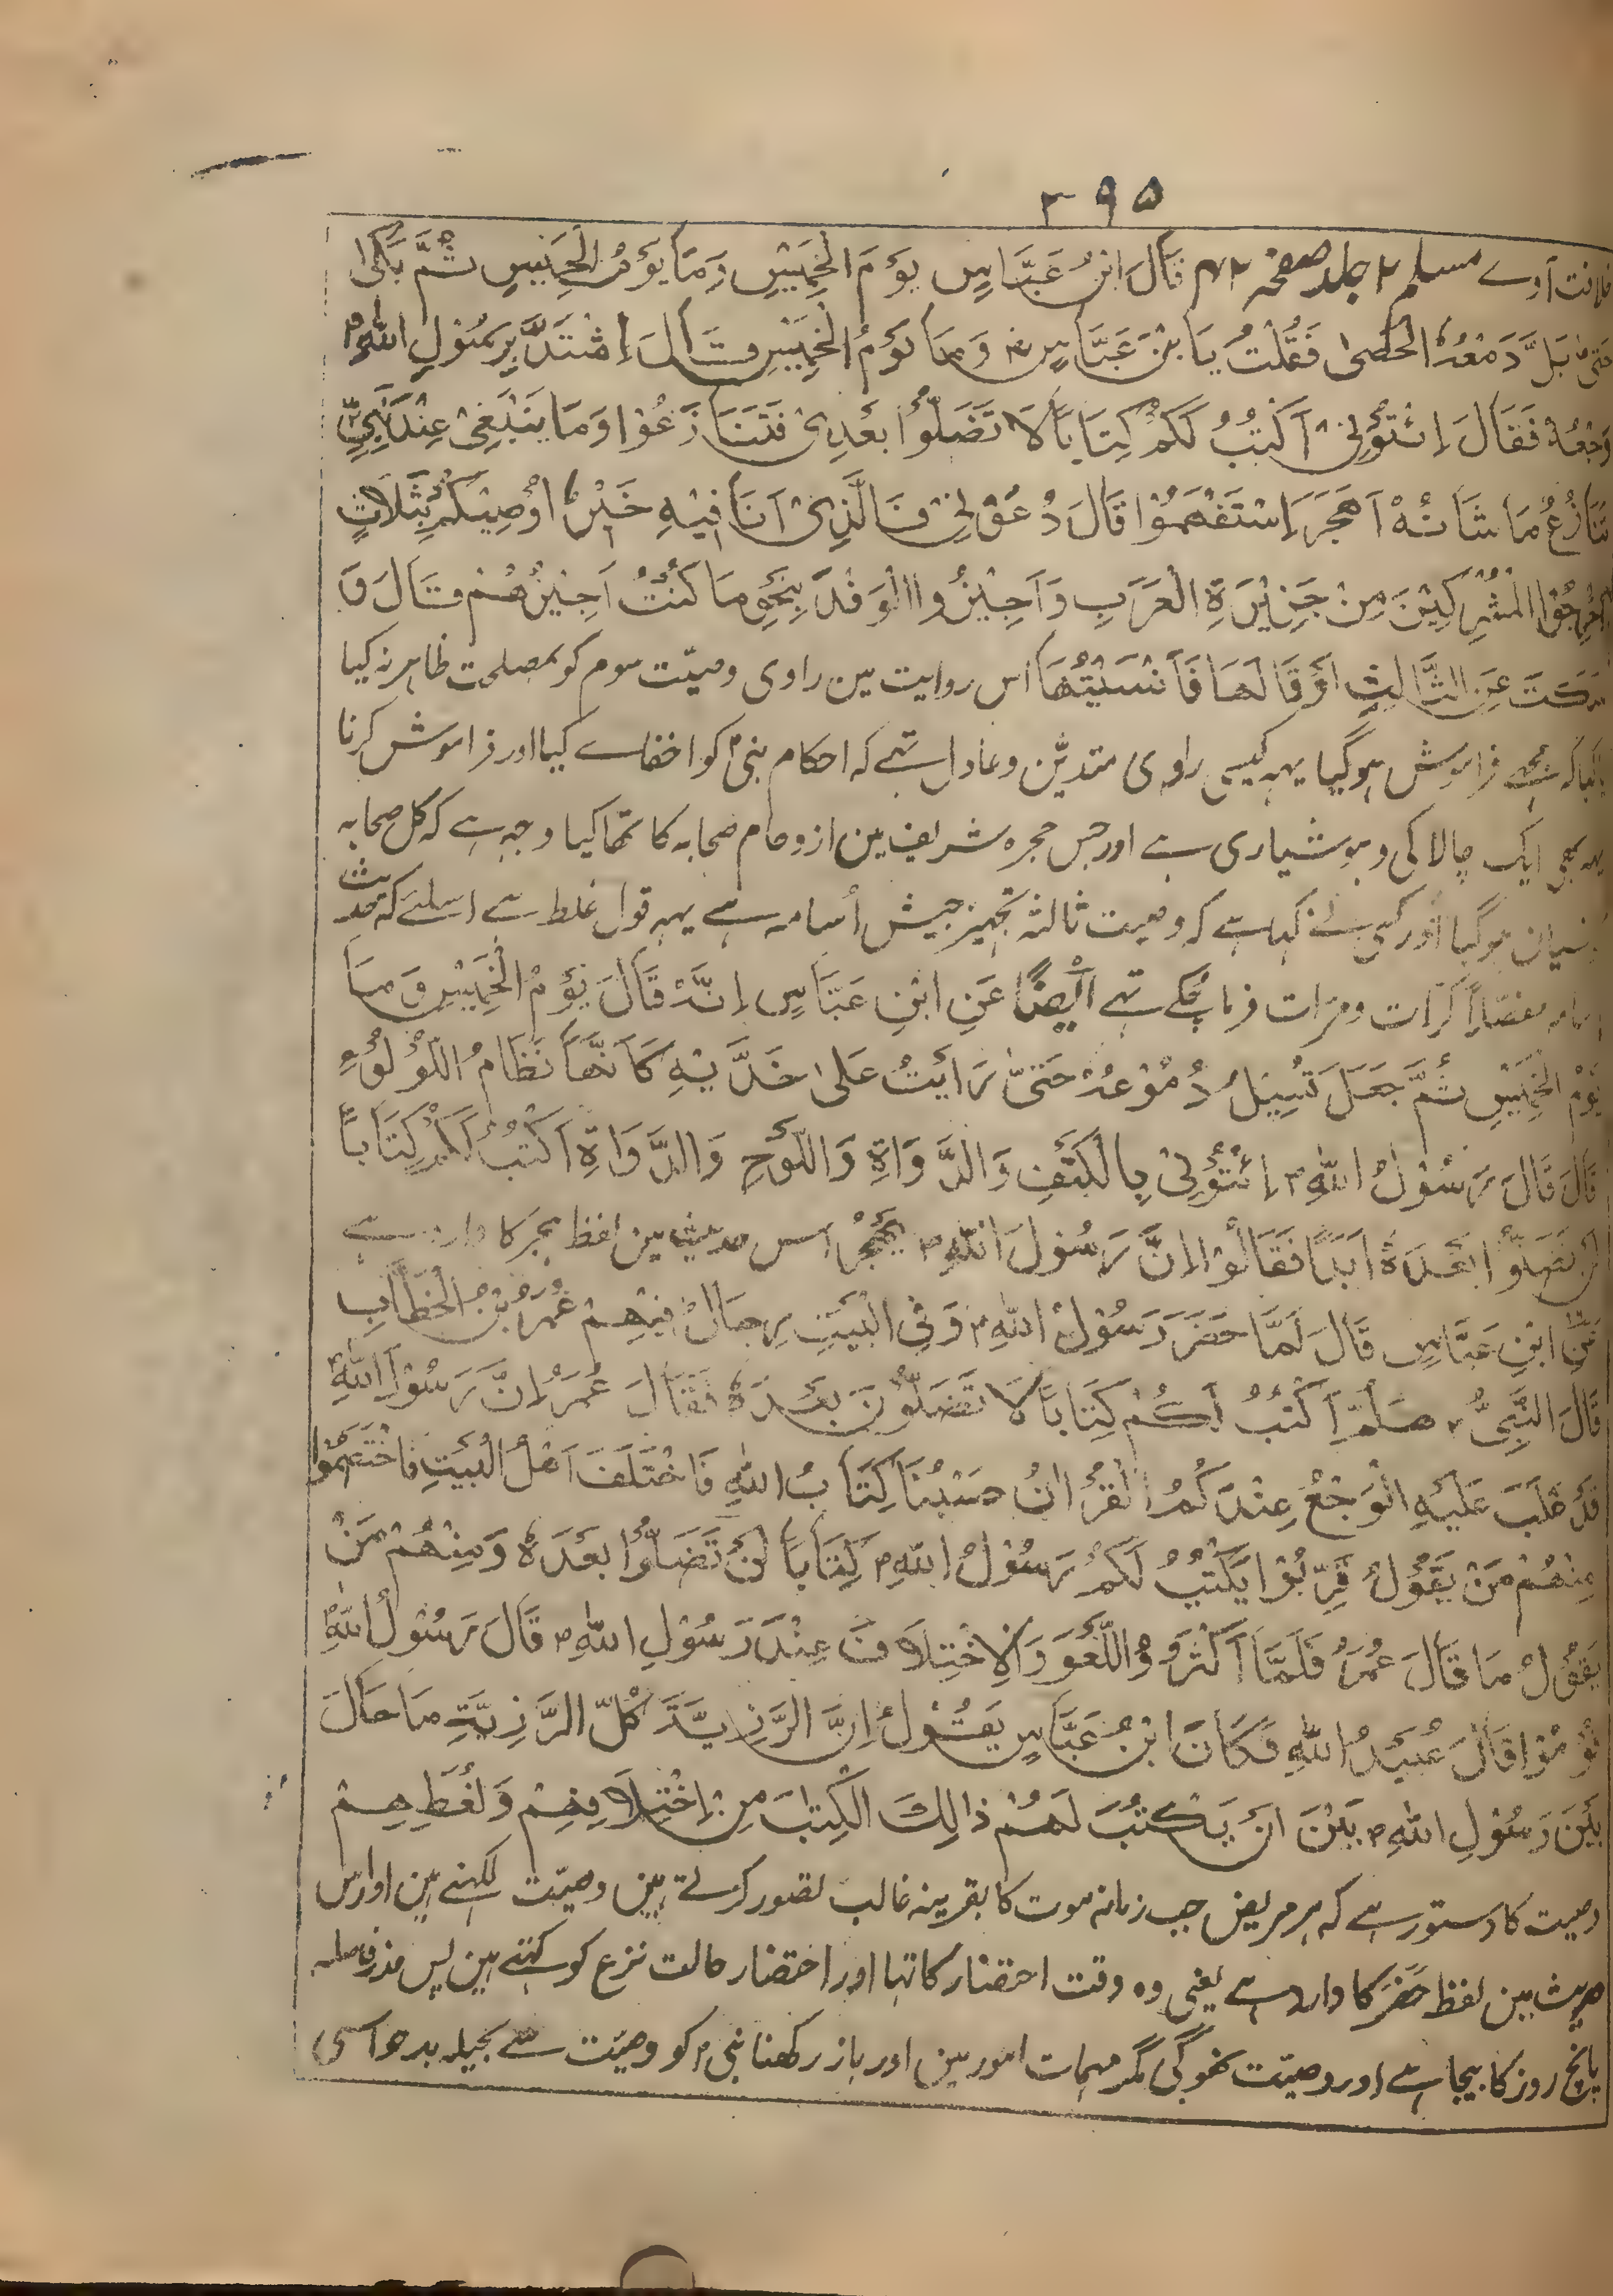 ۲۹۵
خلافت آوے مسلم ۲ جلد صفحہ ۴۲ قَالَ ابْنُ عَبَّاسٍ يَوْمَ الْخَمِيْسِ وَمَا يَوْمُ الْخَمِيْسِ ثُمَّ بَكٰى
حَتّٰى بَلَّ دَمْعُهُ الْحَصٰى فَقُلْتُ يَا بْنَ عَبَّاسٍ وَمَا يَوْمُ الْخَمِيْسِ قَالَ اِشْتَدَّ بِرَسُوْلِ اللهِ ؐ
وَجْعُهٗ فَقَالَ اِئْتُوْنِىْ اَكْتُبْ لَكُمْ كِتَابًا لَا تَضَلُّوْا بَعْدِىْ فَتَنَازَعُوْا وَمَا يَنْبَغِىْ عِنْدَ نَبِيٍّ
تَنَازُعٌ مَا شَانُهٗ اَهَجَرَ اِسْتَفْهَمُوْا قَالَ دُعُوْنِىْ فَالَّذِىْ اَنَا فِيْهِ خَيْرٌ اُوْصِيْكُمْ بِثَلَاثٍ
اَخْرِجُوْا الْمُشْرِكِيْنَ مِنْ جَزِيْرَةِ الْعَرَبِ وَاَجِيْزُوا الْوَفْدَ بِنَحْوِ مَا كُنْتُ اُجِيْزُهُمْ قَالَ وَ
سَكَتَ عَنِ الثَّالِثِ اَوْ قَالَهَا فَاَنْسَيْتُهَا اس روایت مین راوی وصیّت سوم کو بمصلحت ظاہر نہ کیا
کہا کہ مجھے فراموش ہوگیا یہہ کیسی راوی متدیّن وعادل تہے کہ احکام نبی ؐ کو اخفاے کیا اور فراموش کرنا
یہہ بھی ایک چالاکی وہوشیاری ہے اور جس حجرہ شریف مین ازدحام صحابہ کا تھا کیا وجہہ ہے کہ کل صحابہ
نسیان ہوگیا اور کسی نے کہا ہے کہ وصیت ثالثہ تجہیز جیش اُسامہ ہے یہہ قول غلط ہے اسلئے کہ حدیث
اسامہ مفصّلاً کرات ومرات فرما چُکے تہے اَيْضًا عَنِ ابْنِ عَبَّاسٍ اِنَّهٗ قَالَ يَوْمُ الْخَمِيْسِ وَمَا
يَوْمُ الْخَمِيْسِ ثُمَّ جَعَلَ تَسِيْلُ دُمُوْعُهٗ حَتّٰى رَاَيْتُ عَلٰى خَدَّيْهِ كَاَنَّهَا نَظَامُ اللُّؤْلُوْءِ
قَالَ قَالَ رَسُوْلُ اللهِ ؐ اِئْتُوْنِىْ بِالْكَتِفِ وَالدَّوَاةِ وَاللَّوْحِ وَالدَّوَاةِ اَكْتُبْ لَكُمْ كِتَابًا
لَنْ تَضَلُّوْا بَعْدَهٗ اَبَدًا فَقَالُوْا اِنَّ رَسُوْلَ اللهِ ؐ يَهْجُرُ اس حدیث مین لفظ ہجر کا وارد ہے
عَنِ ابْنِ عَبَّاسٍ قَالَ لَمَّا حَضَرَ رَسُوْلُ اللهِ ؐ وَفِى الْبَيْتِ رِجَالٌ فِيْهِمْ عُمَرُ بْنُ الْخَطَّابِ
قَالَ النَّبِىُّ ؐ هَلُمَّ اَكْتُبُ لَكُمْ كِتَابًا لَا تَضَلُّوْنَ بَعْدَهٗ فَقَالَ عُمَرُ اِنَّ رَسُوْلَ اللهِ ؐ
قَدْ غَلَبَ عَلَيْهِ الْوَجْعُ عِنْدَكُمُ الْقُرْاٰنُ حَسْبُنَا كِتَابُ اللهِ فَاخْتَلَفَ اَهْلُ الْبَيْتِ فَاخْتَصَمُوْا
مِنْهُمْ مَنْ يَقُوْلُ قَرِّبُوْا يَكْتُبُ لَكُمْ رَسُوْلُ اللهِ ؐ كِتَابًا لَنْ تَضَلُّوْا بَعْدَهٗ وَمِنْهُمْ مَنْ
يَقُوْلُ مَا قَالَ عُمَرُ فَلَمَّا اَكْثَرُوْ اللَّغْوَ وَالْاِخْتِلَافَ عِنْدَ رَسُوْلِ اللهِ ؐ قَالَ رَسُوْلُ اللهِ ؐ
قُوْمُوْا قَالَ عُبَيْدُ اللهِ فَكَانَ ابْنُ عَبَّاسٍ يَقُوْلُ اِنَّ الرَّزِيَّةَ كُلَّ الرَّزِيَّةِ مَا حَالَ
بَيْنَ رَسُوْلِ اللهِ ؐ بَيْنَ اَنْ يَكْتُبَ لَهُمْ ذَالِكَ الْكِتٰبَ مِنْ اِخْتِلَافِهِمْ وَلَغَطِهِمْ
وصیت کا دستور ہے کہ ہر مریض جب زمانہ موت کا بقرینہ غالب تصور کرتے ہین وصیّت لکہتے ہین اور اس
حدیث مین لفظ حَضَرَ کا وارد ہے یعنی وہ وقت احتضار کا تہا اور احتضار حالت نزع کو کہتے ہین پس عذر فاصلہ
پانچ روز کا بیجا ہے اور وصیّت نہوگی مگر مہمات امور مین اور باز رکھنا نبی ؐ کو وصیّت سے بحیلہ بدحواسی